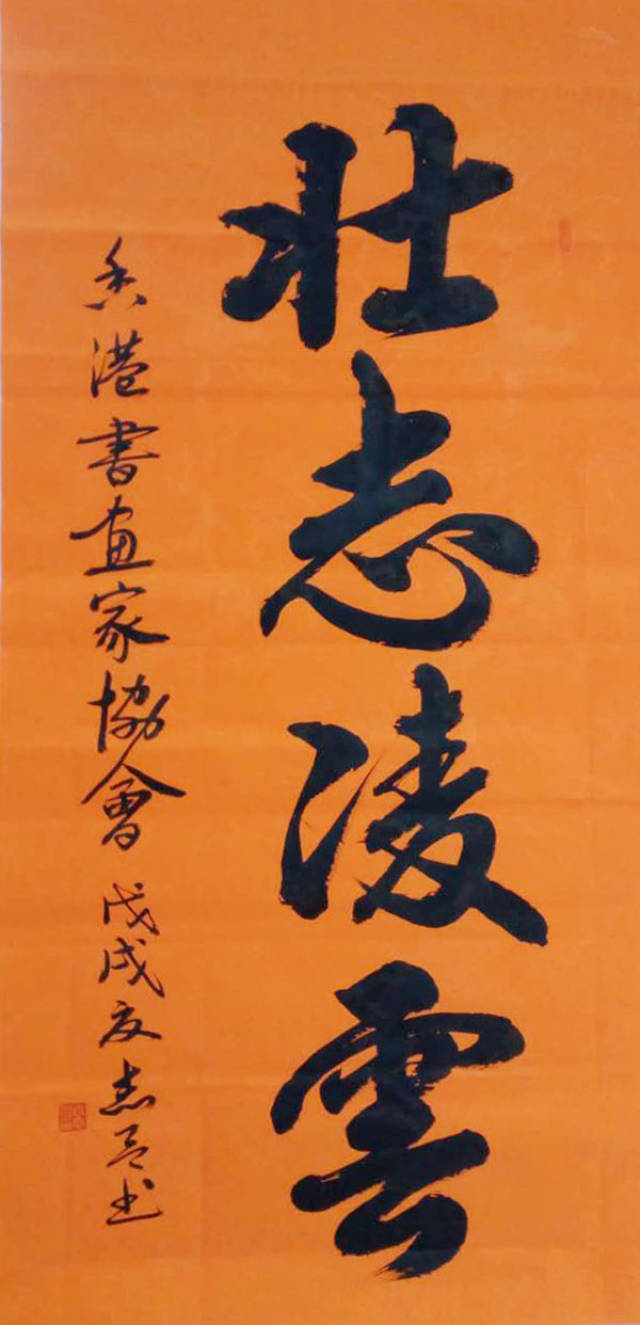 壮志凌雲
香港書画家協會 戊戌夏志書